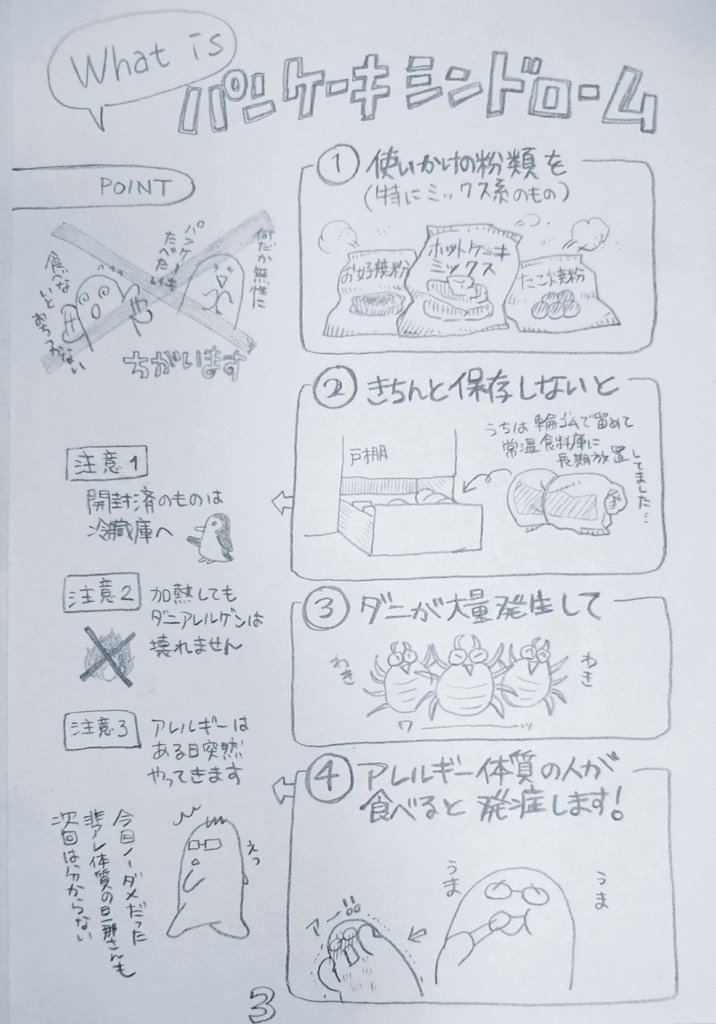 What is
パンケーキミンドローム
POINT
何だか無性に
パンケーキ
たべたい!!
食べな
いとおちつかない
ちがいます
① 使いかけの粉類を
(特にミックス系のもの)
お好焼粉
ホットケーキ
ミックス
たこ焼粉
② きちんと保存しないと
うちは輪ゴムで留めて
常温食料庫に
長期放置してました…
戸棚
注意1
開封済のものは
冷蔵庫へ
③ ダニが大量発生して
わき
わき
ワーーッ
注意2
加熱しても
ダニアレルゲンは
壊れません
④ アレルギー体質の人が
食べると発症します!
うま
うま
アー!!
注意3
アレルギーは
ある日突然
やってきます
えっ
今回ノーダメだった
非アレ体質の旦那さんも
次回は分からない
3